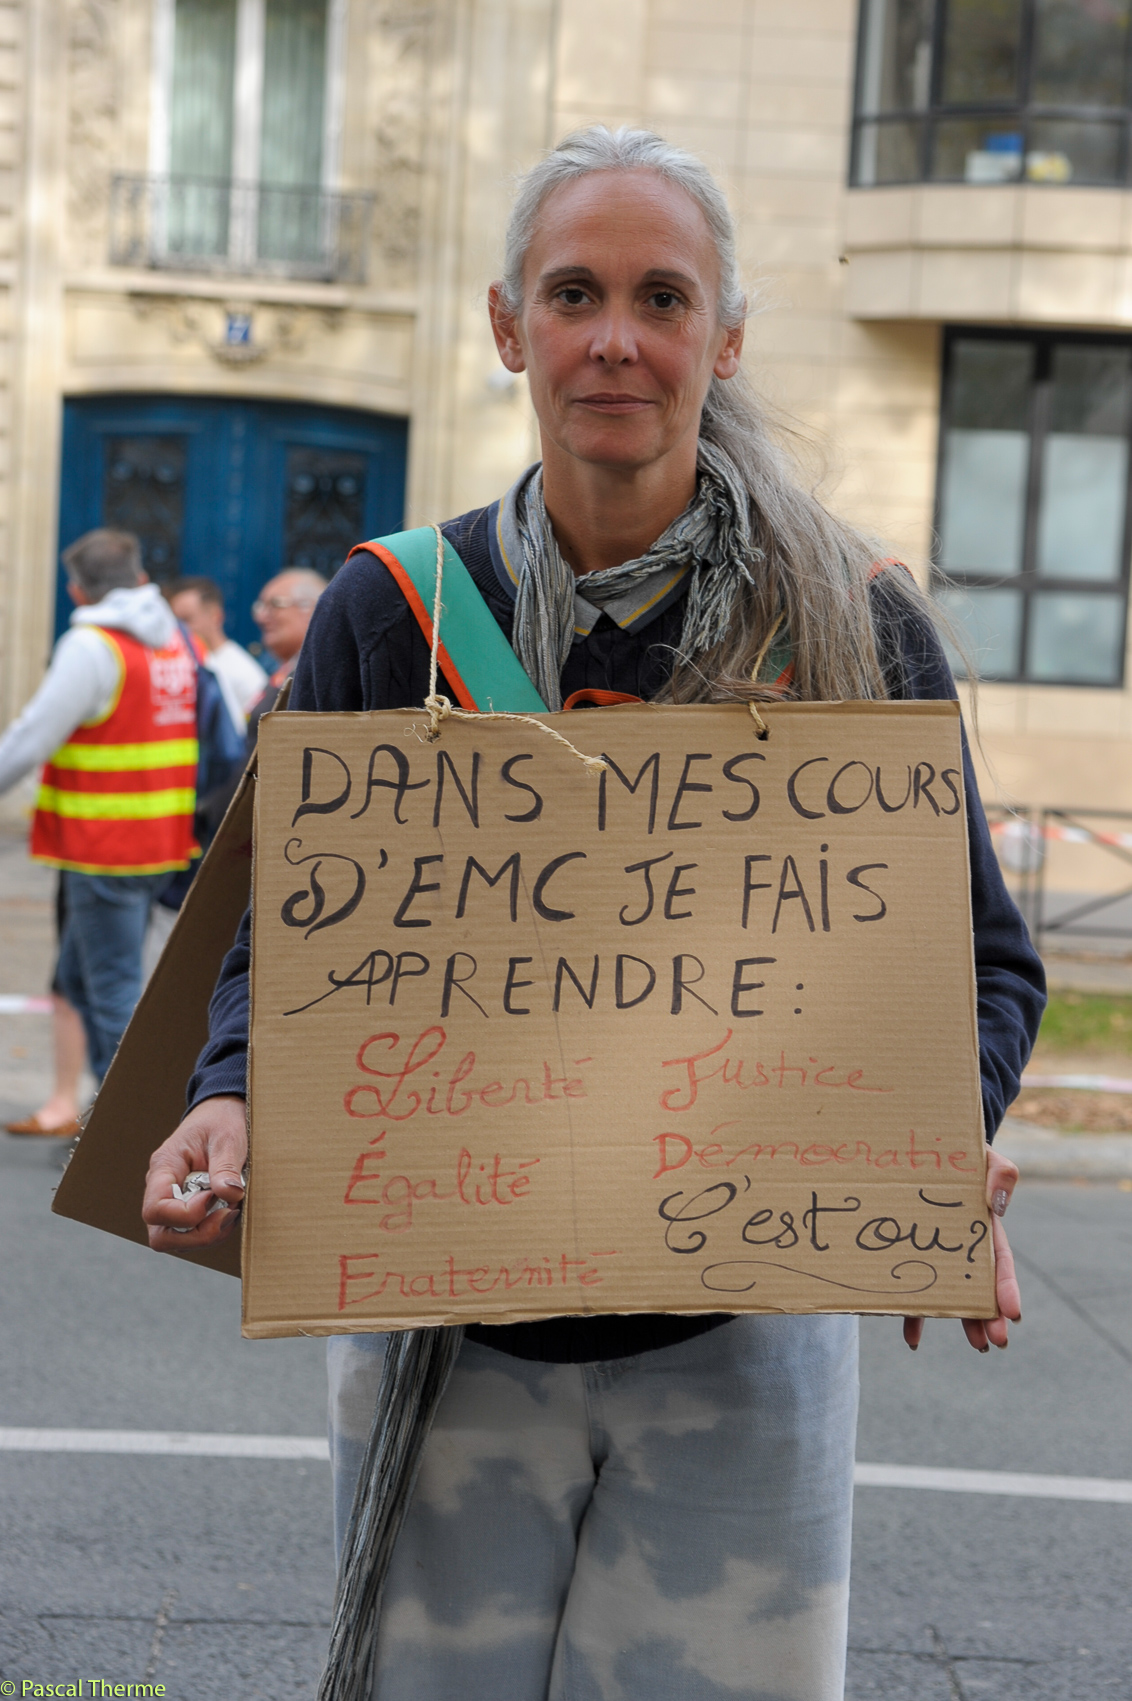 27
cgt
DANS MES COURS
D'EMC JE FAIS
APPRENDRE :
Liberté
Égalité
Fraternité
Justice
Démocratie
C'est où ?
© Pascal Therme